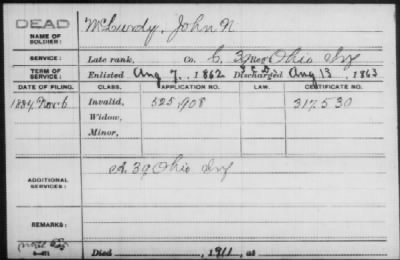 DEAD
NAME OF SOLDIER: McCurdy, John N
SERVICE: Late rank, Co. C, 39 Reg Ohio Inf
TERM OF SERVICE: Enlisted Aug 7, 1862 Discharged Aug 13, 1863
DATE OF FILING. CLASS. APPLICATION NO. LAW. CERTIFICATE NO.
1884 Nov 6 Invalid, 525,908 317530
Widow,
Minor,
ADDITIONAL SERVICES: 39 Ohio Inf
REMARKS:
Died , 1911, at